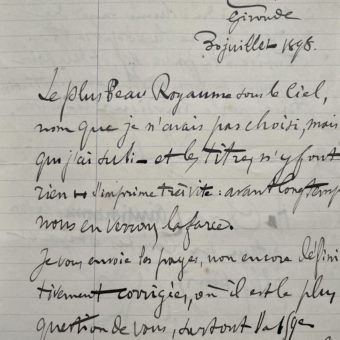 Gironde
30 juillet 1898.
Le plus Beau Royaume sous le Ciel,
nom que je n'avais pas choisi, mais
que j'ai subi — et les titres n'y font
rien — s'imprime très vite : avant longtemps
nous en verrons la farce.
Je vous envoie les pages, non encore défini
tivement corrigées, où il est le plus
question de vous, surtout